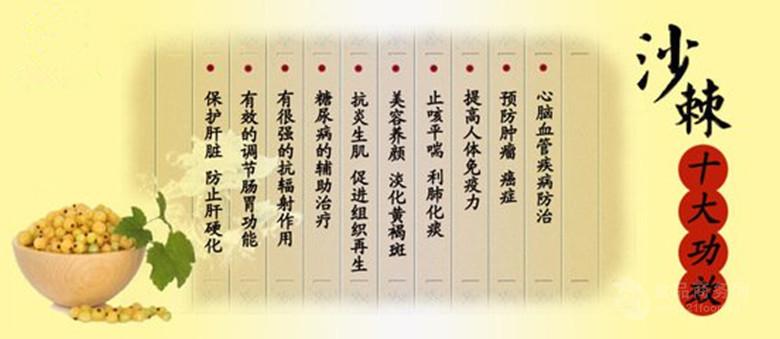 沙棘
十大功效
心脑血管疾病防治
预防肿瘤 癌症
提高人体免疫力
止咳平喘 利肺化痰
美容养颜 淡化黄褐斑
抗炎生肌 促进组织再生
糖尿病的辅助治疗
有很强的抗辐射作用
有效的调节肠胃功能
保护肝脏 防止肝硬化